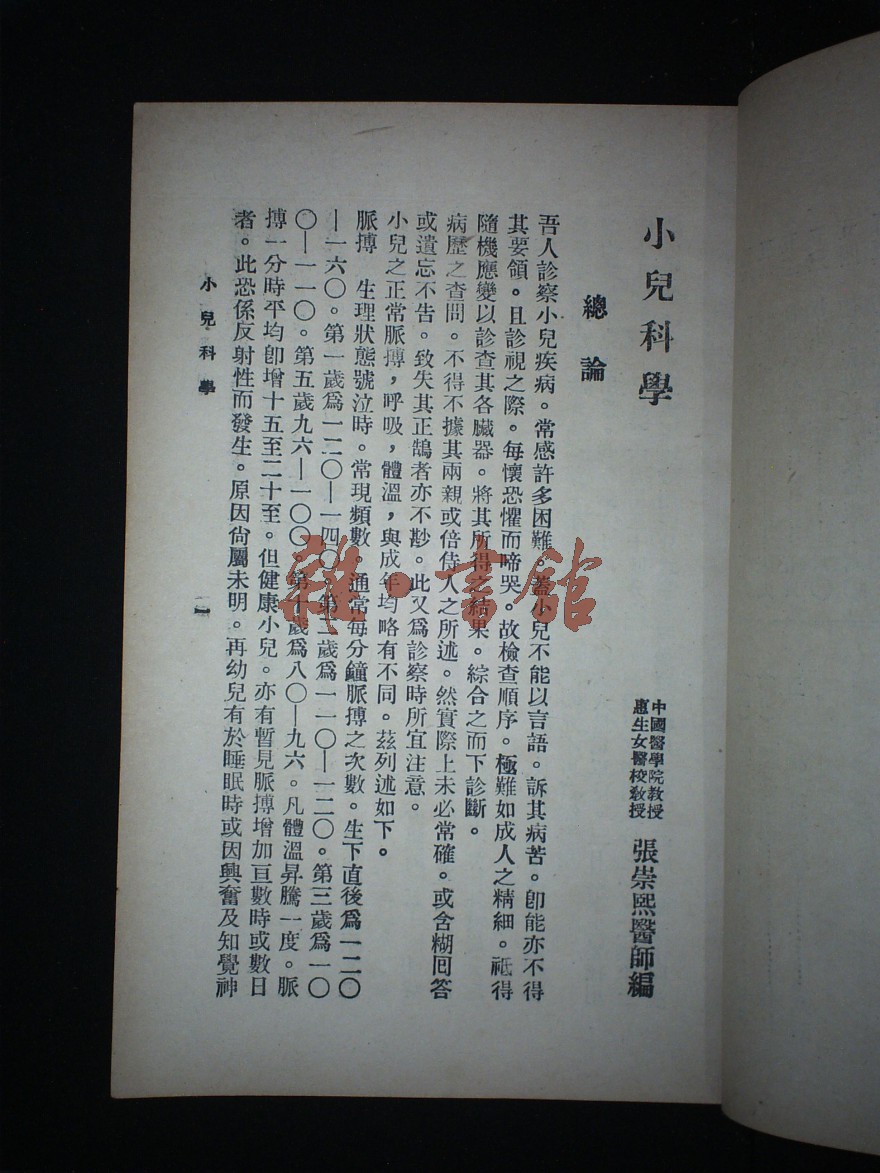 小兒科學
中國醫學院教授
惠生女醫校教授
張崇熙醫師編
總論
吾人診察小兒疾病。常感許多困難。蓋小兒不能以言語。訴其病苦。卽能亦不得
其要領。且診視之際。每懷恐懼而啼哭。故檢查順序。極難如成人之精細。祗得
隨機應變以診查其各臟器。將其所得之結果。綜合之而下診斷。
病歷之查問。不得不據其兩親或倍侍人之所述。然實際上未必常確。或含糊回答
或遺忘不告。致失其正鵠者亦不尠。此又爲診察時所宜注意。
小兒之正常脈搏，呼吸，體溫，與成年均略有不同。茲列述如下。
脈搏　生理狀態號泣時。常現頻數。通常每分鐘脈搏之次數。生下直後爲一二〇
—一六〇。第一歲爲一二〇—一四〇。第二歲爲一一〇—一二〇。第三歲爲一〇
〇—一一〇。第五歲九六—一〇〇。第十歲爲八〇—九六。凡體溫昇騰一度。脈
搏一分時平均卽增十五至二十至。但健康小兒。亦有暫見脈搏增加亘數時或數日
者。此恐係反射性而發生。原因尙屬未明。再幼兒有於睡眠時或因興奮及知覺神
小兒科學
一
雜·書館